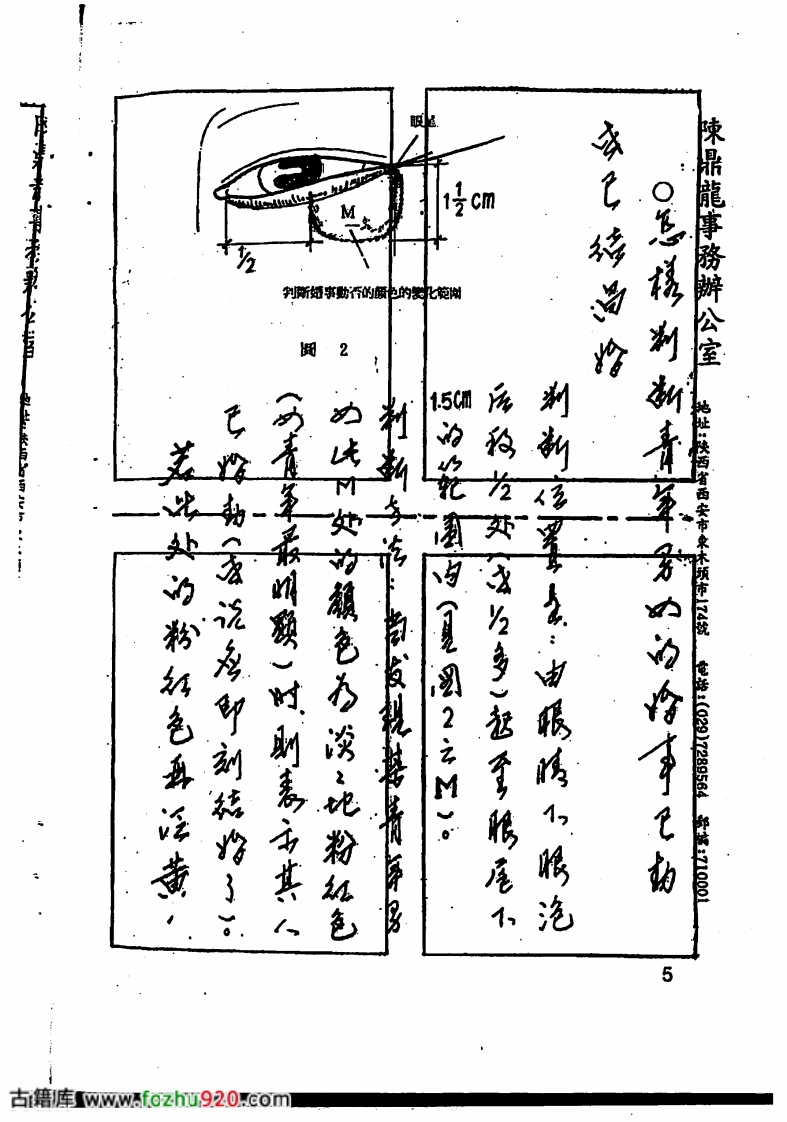 陳鼎龍事務辦公室
地址:陝西省西安市東木頭市174號 電話:(029)7289564 郵編:710001
○怎樣判斷青年男女的婚事已動
或已結過婚
判斷位置是:由眼睛下眼泡
后移1/2处(或1/2多)起至眼尾下
1.5cm的範圍内(見圖2之M)。
判斷方法:当发現某青年男
女此M处的顏色为淡淡地粉红色
(如青年最明顯)时則表示其人
已婚動(或說應即刻結婚了)。
若此处的粉红色再泛黄,
眼尾
1½cm
M
1/2
判斷婚事動否的顏色的變化範圍
圖 2
5
古籍库 www.fozhu920.com